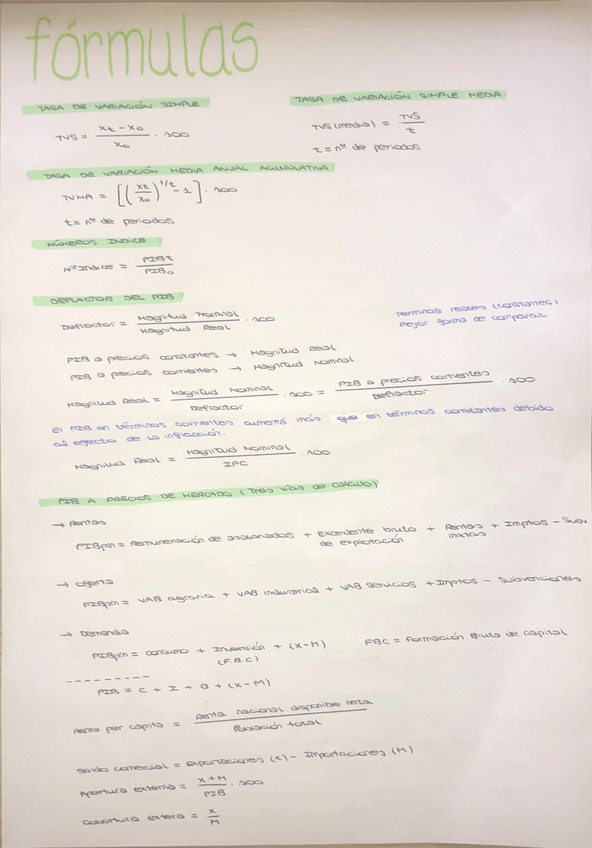 fórmulas
TASA DE VARIACIÓN SIMPLE
TVS = (Xt - X0 / X0) · 100
TASA DE VARIACIÓN SIMPLE MEDIA
TVS (media) = TVS / t
t = nº de periodos
TASA DE VARIACIÓN MEDIA ANUAL ACUMULATIVA
TVMA = [(Xt / X0)^1/t - 1] · 100
t = nº de periodos
NÚMEROS INDICE
Nº Indice = PIBt / PIB0
DEFLACTOR DEL PIB
Deflactor = Magnitud Nominal / Magnitud Real · 100
Terminos reales (constantes)
mejor forma de comparar
PIB a precios constantes → Magnitud Real
PIB a precios corrientes → Magnitud Nominal
Magnitud Real = Magnitud Nominal / Deflactor · 100 = PIB a precios corrientes / Deflactor · 100
El PIB en términos corrientes aumentó más que en términos constantes debido
al efecto de la inflacción.
Magnitud Real = Magnitud Nominal / IPC · 100
PIB A PRECIOS DE MERCADO (Tres vías de calculo)
→ Rentas
PIBpm = Remuneración de asalariados + Excedente bruto de explotación + Rentas mixtas + Imptos - Subv
→ Oferta
PIBpm = VAB agraria + VAB industrias + VAB servicios + Imptos - Subvenciones
→ Demanda
PIBpm = consumo + Inversión (F.B.C) + (X-M)
FBC = Formación Bruta de capital
PIB = C + I + G + (X-M)
Renta per capita = Renta nacional disponible neta / Población total
Saldo comercial = Exportaciones (X) - Importaciones (M)
Apertura externa = X+M / PIB · 100
Cobertura extera = X / M